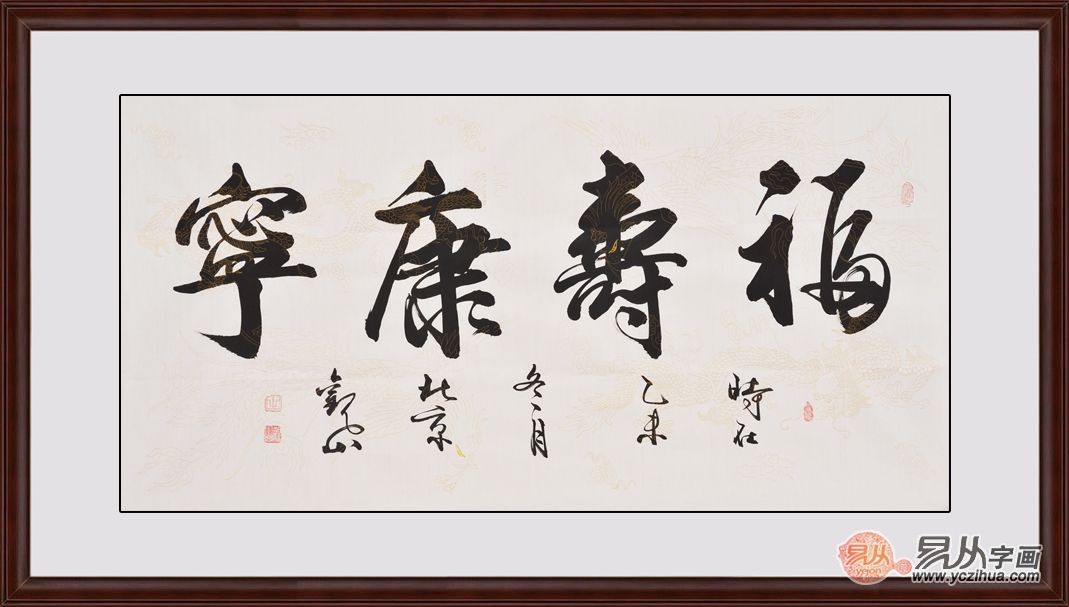 福壽康寧
時在
乙未
冬月
北京
觀山
易从字画
易从
yejon
www.yczihua.com